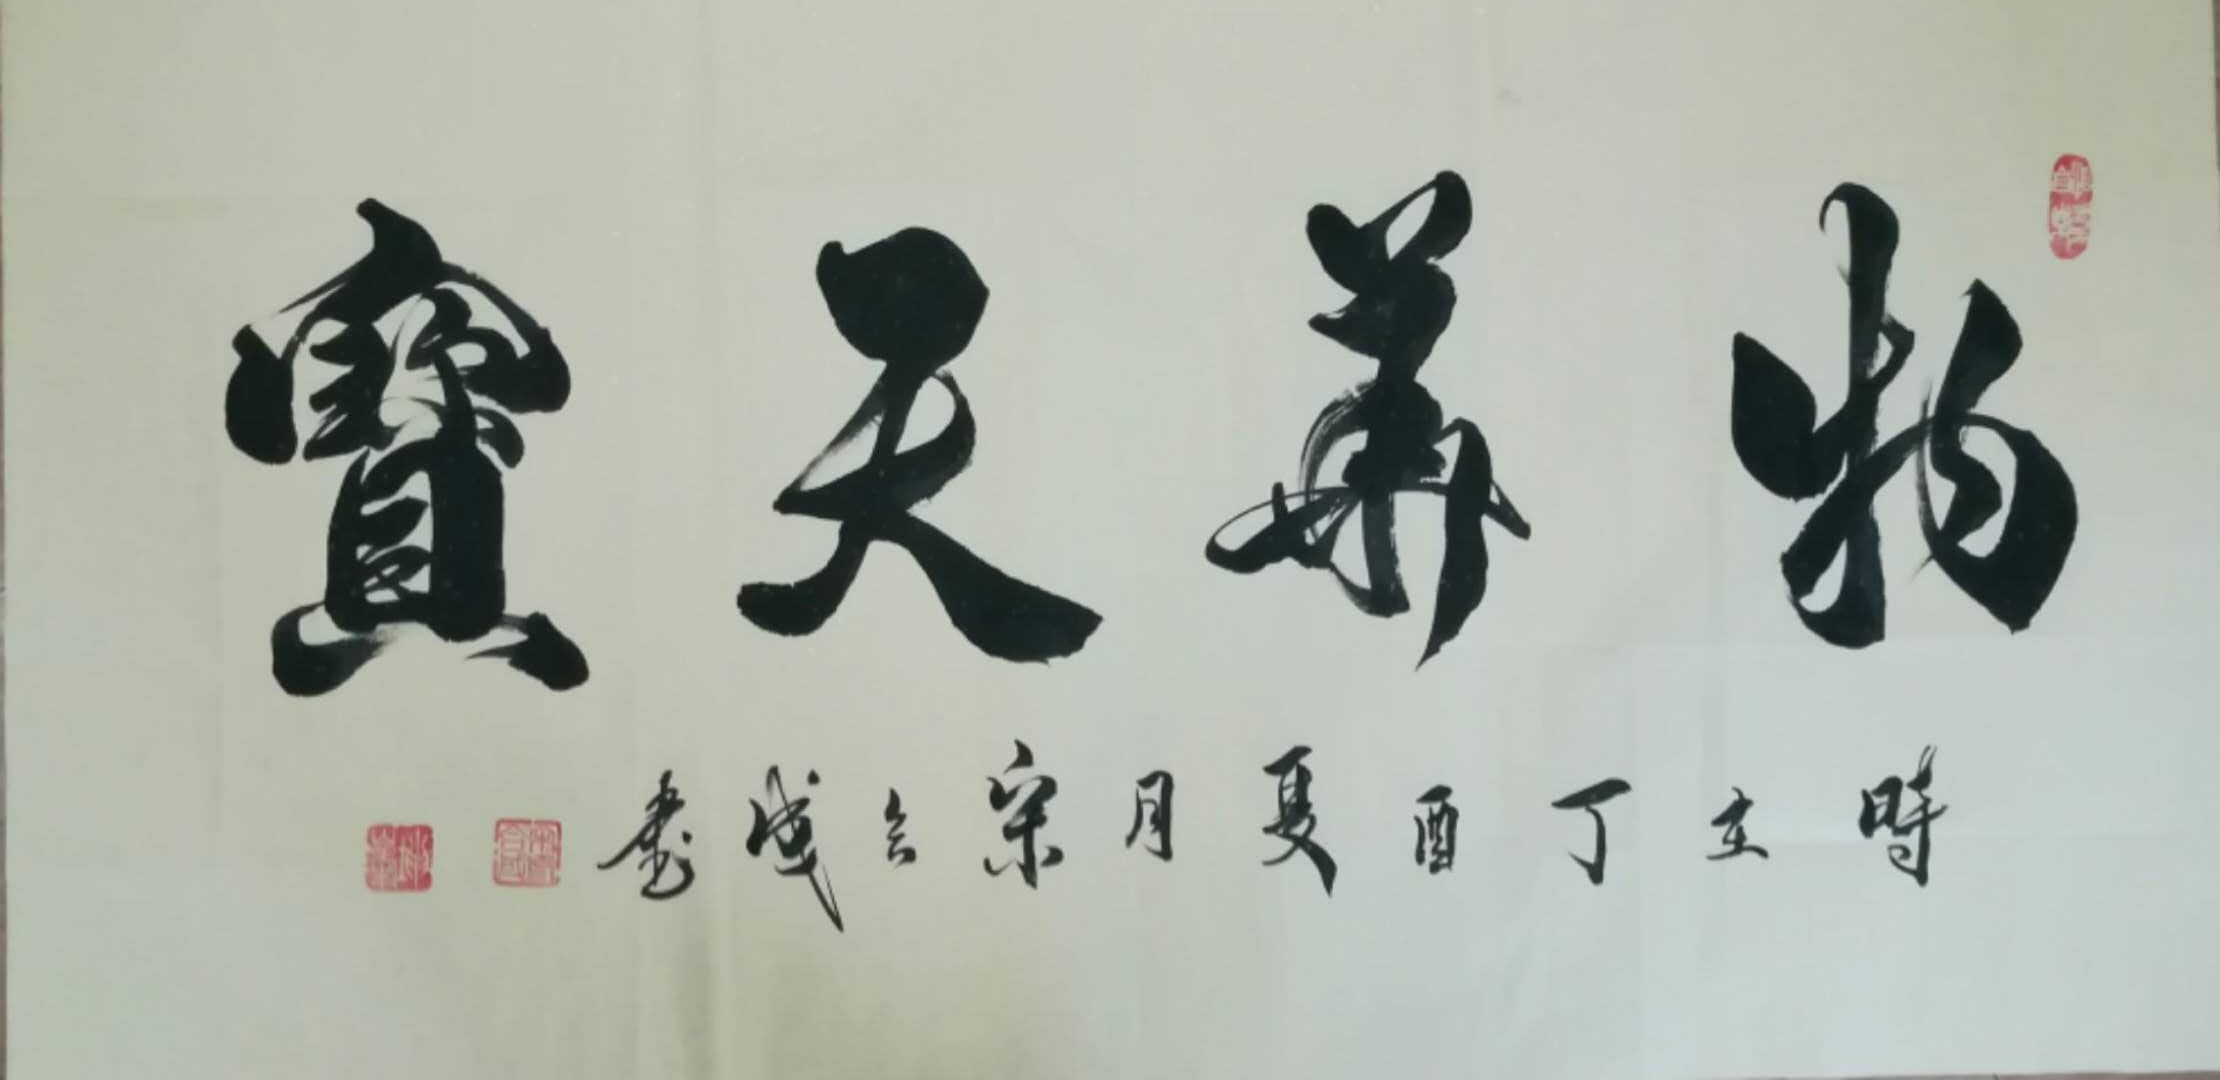 物華天寶
時在丁酉夏月宋 書